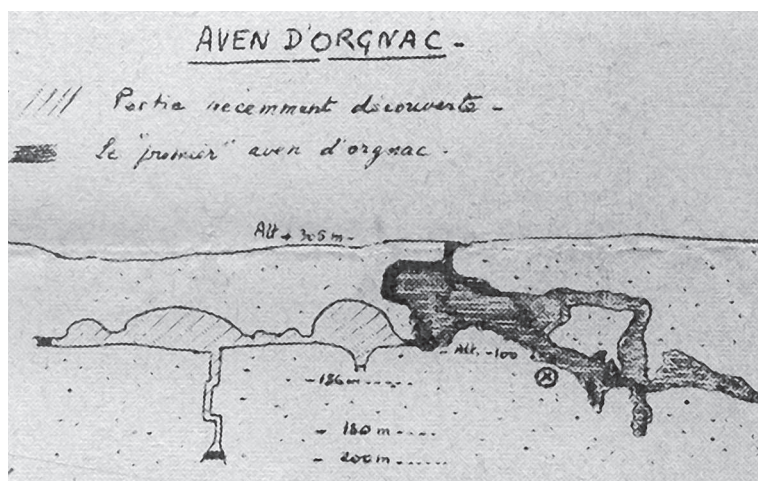 AVEN D'ORGNAC -
Partie récemment découverte -
Le "premier" aven d'orgnac -
Alt + 305 m -
- Alt. -100
- 136m -----
- 180 m ----
- 200m -----